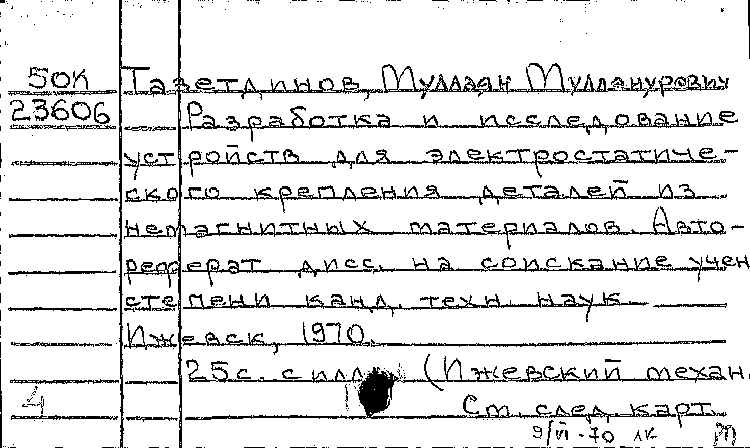 50к Тазетдинов, Муллаян Мулланурович
23606 Разработка и исследование
устройств для электростатиче-
ского крепления деталей из
немагнитных материалов. Авто-
реферат дисс. на соискание учен
степени канд. техн. наук.
Ижевск, 1970.
25с. с илл. (Ижевский механ.
4 См. след. карт.
9/VI-70 лк